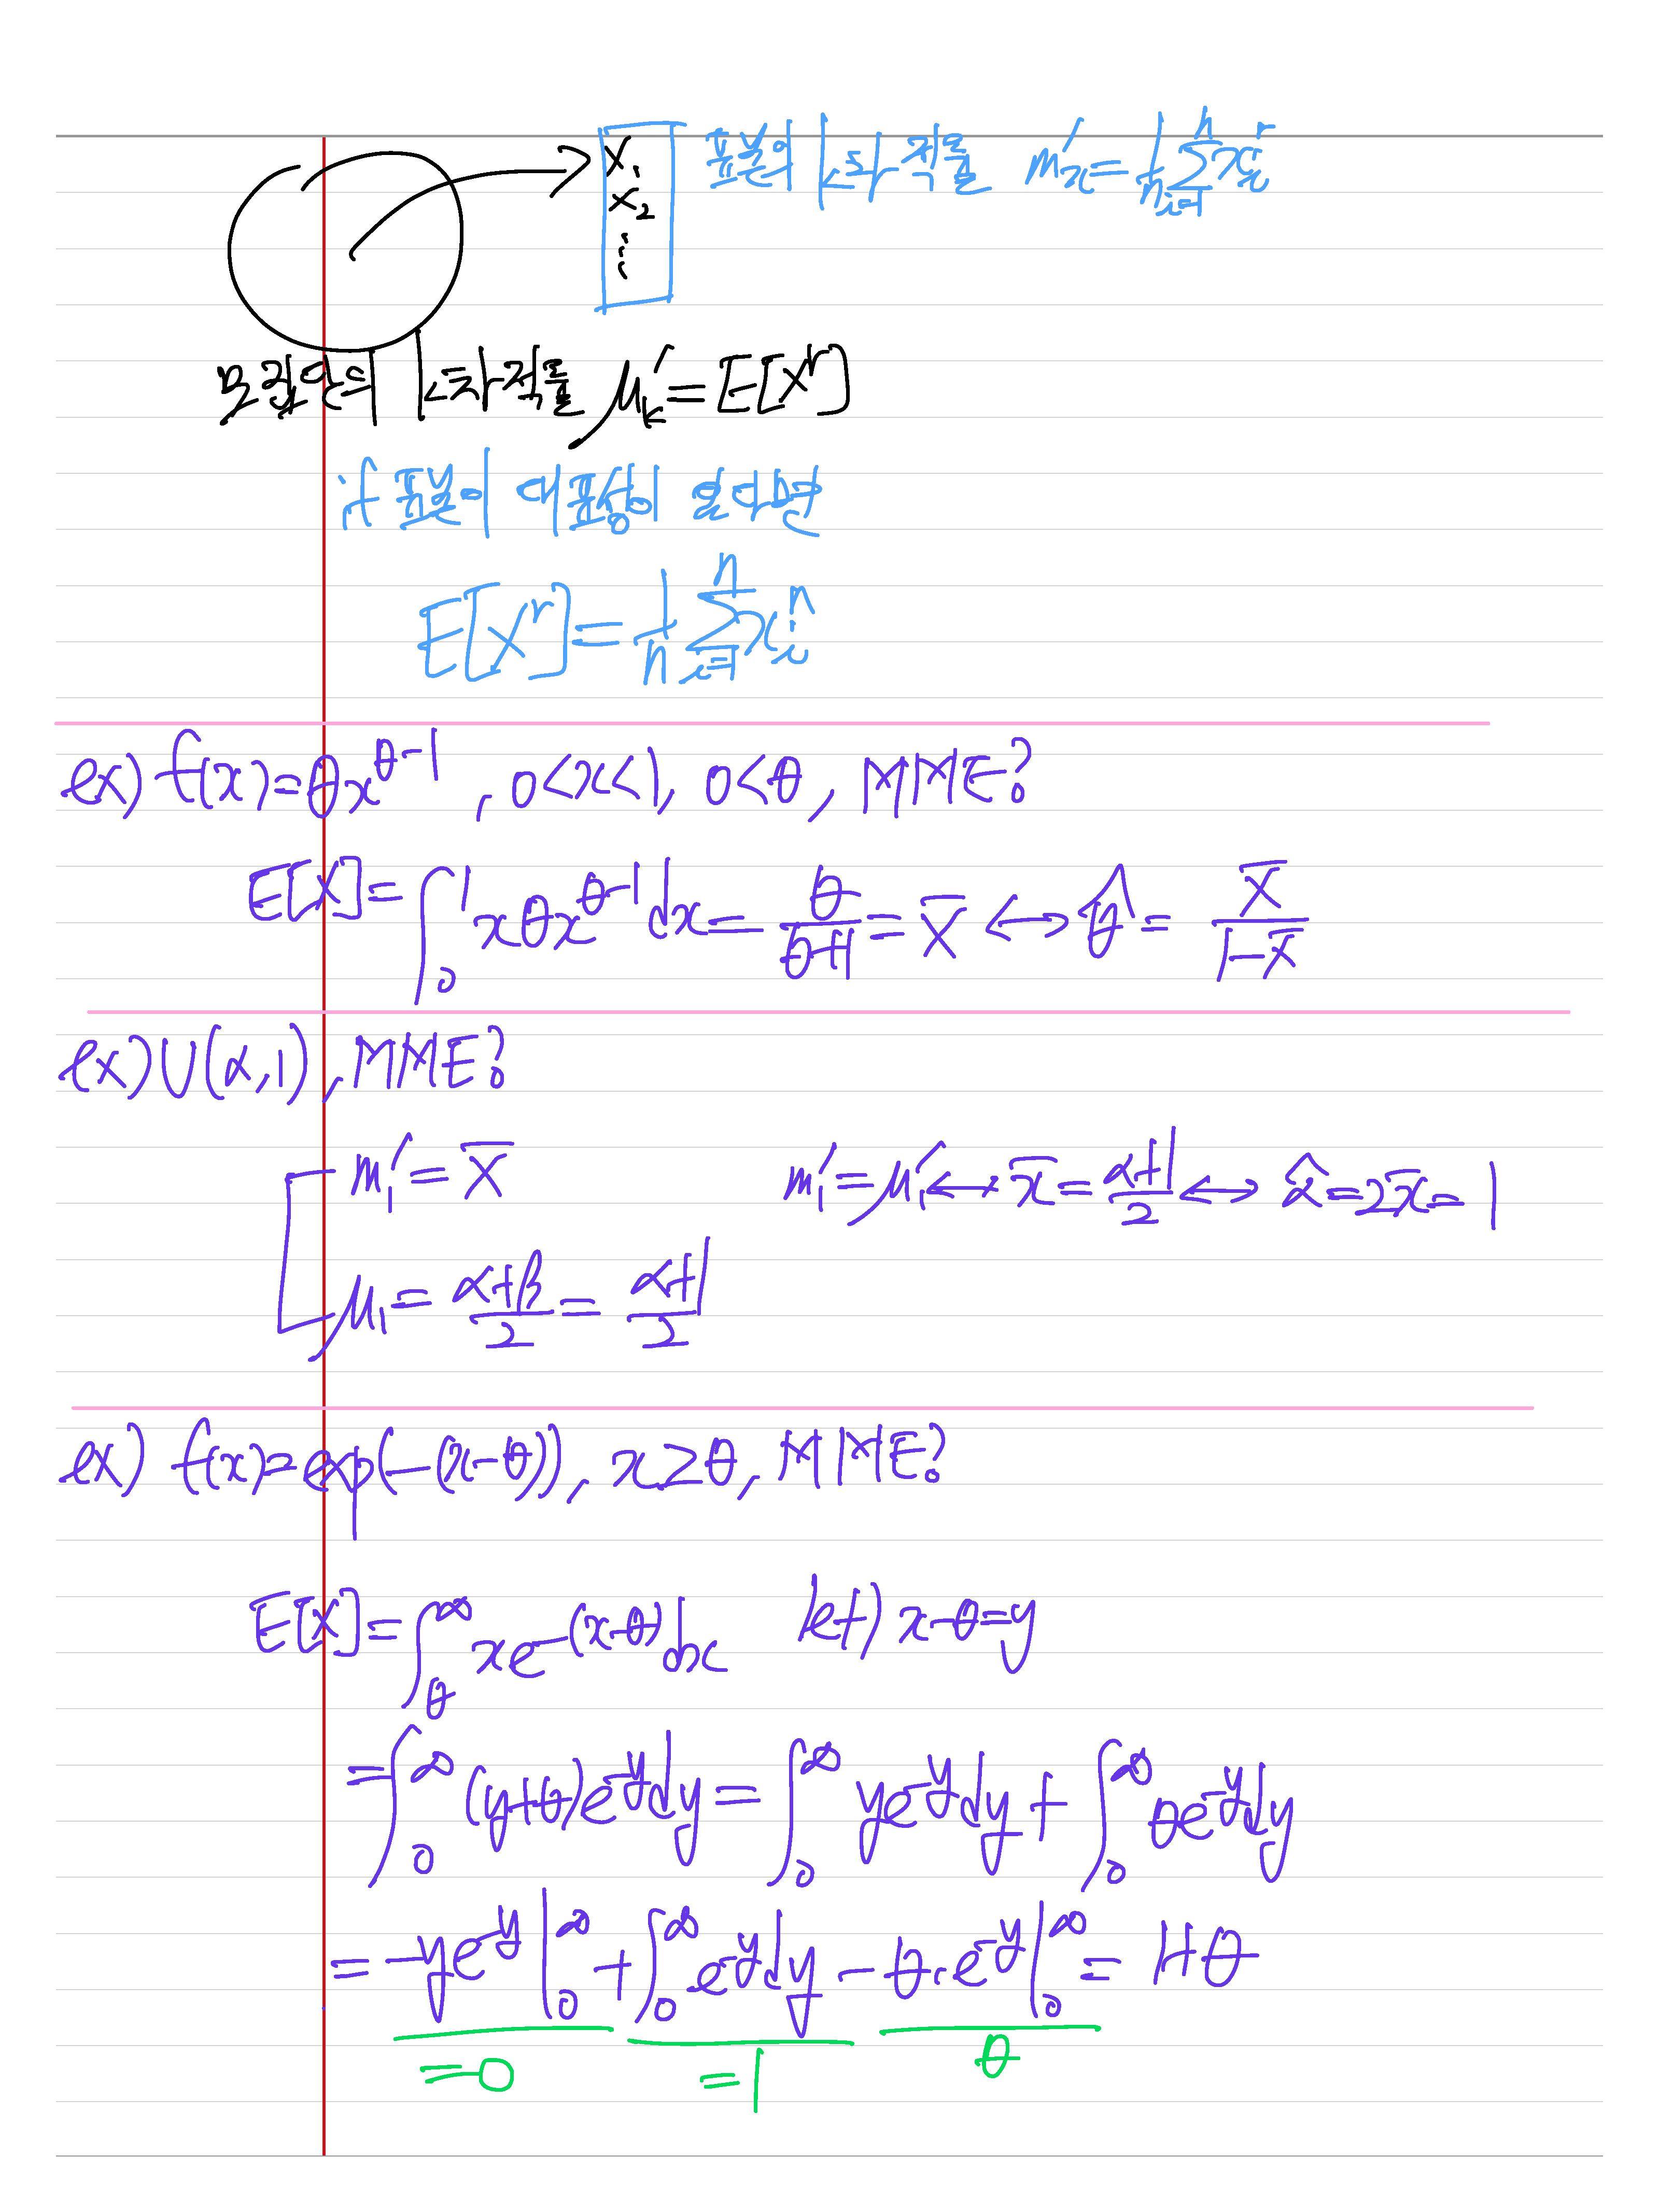 X₁
X₂
⋮
표본의 k차 적률 m'ₓ = 1/n Σᵢ₌₁ⁿ xᵢʳ
모집단의 k차 적률 μ'ₖ = E[Xʳ]
if 표본이 대표성이 있다면
E[Xʳ] = 1/n Σᵢ₌₁ⁿ xᵢⁿ
ex) f(x) = θx^(θ-1), 0<x<1, 0<θ, MME?
E[X] = ∫₀¹ xθx^(θ-1)dx = θ/(θ+1) = X̄ ↔ θ̂ = X̄/(1-X̄)
ex) U(α,1), MME?
m₁' = X̄
m₁' = μ₁' ↔ x̄ = (α+1)/2 ↔ α̂ = 2x̄ = 1
μ₁ = (α+β)/2 = (α+1)/2
ex) f(x) = exp(-(x-θ)), x≥θ, MME?
E[X] = ∫_θ^∞ xe^-(x-θ)dx let) x-θ=y
= ∫₀^∞ (y+θ)e^-y dy = ∫₀^∞ ye^-y dy + ∫₀^∞ θe^-y dy
= -ye^-y |₀^∞ + ∫₀^∞ e^-y dy - θ·e^-y |₀^∞ = 1+θ
=0 =1 θ